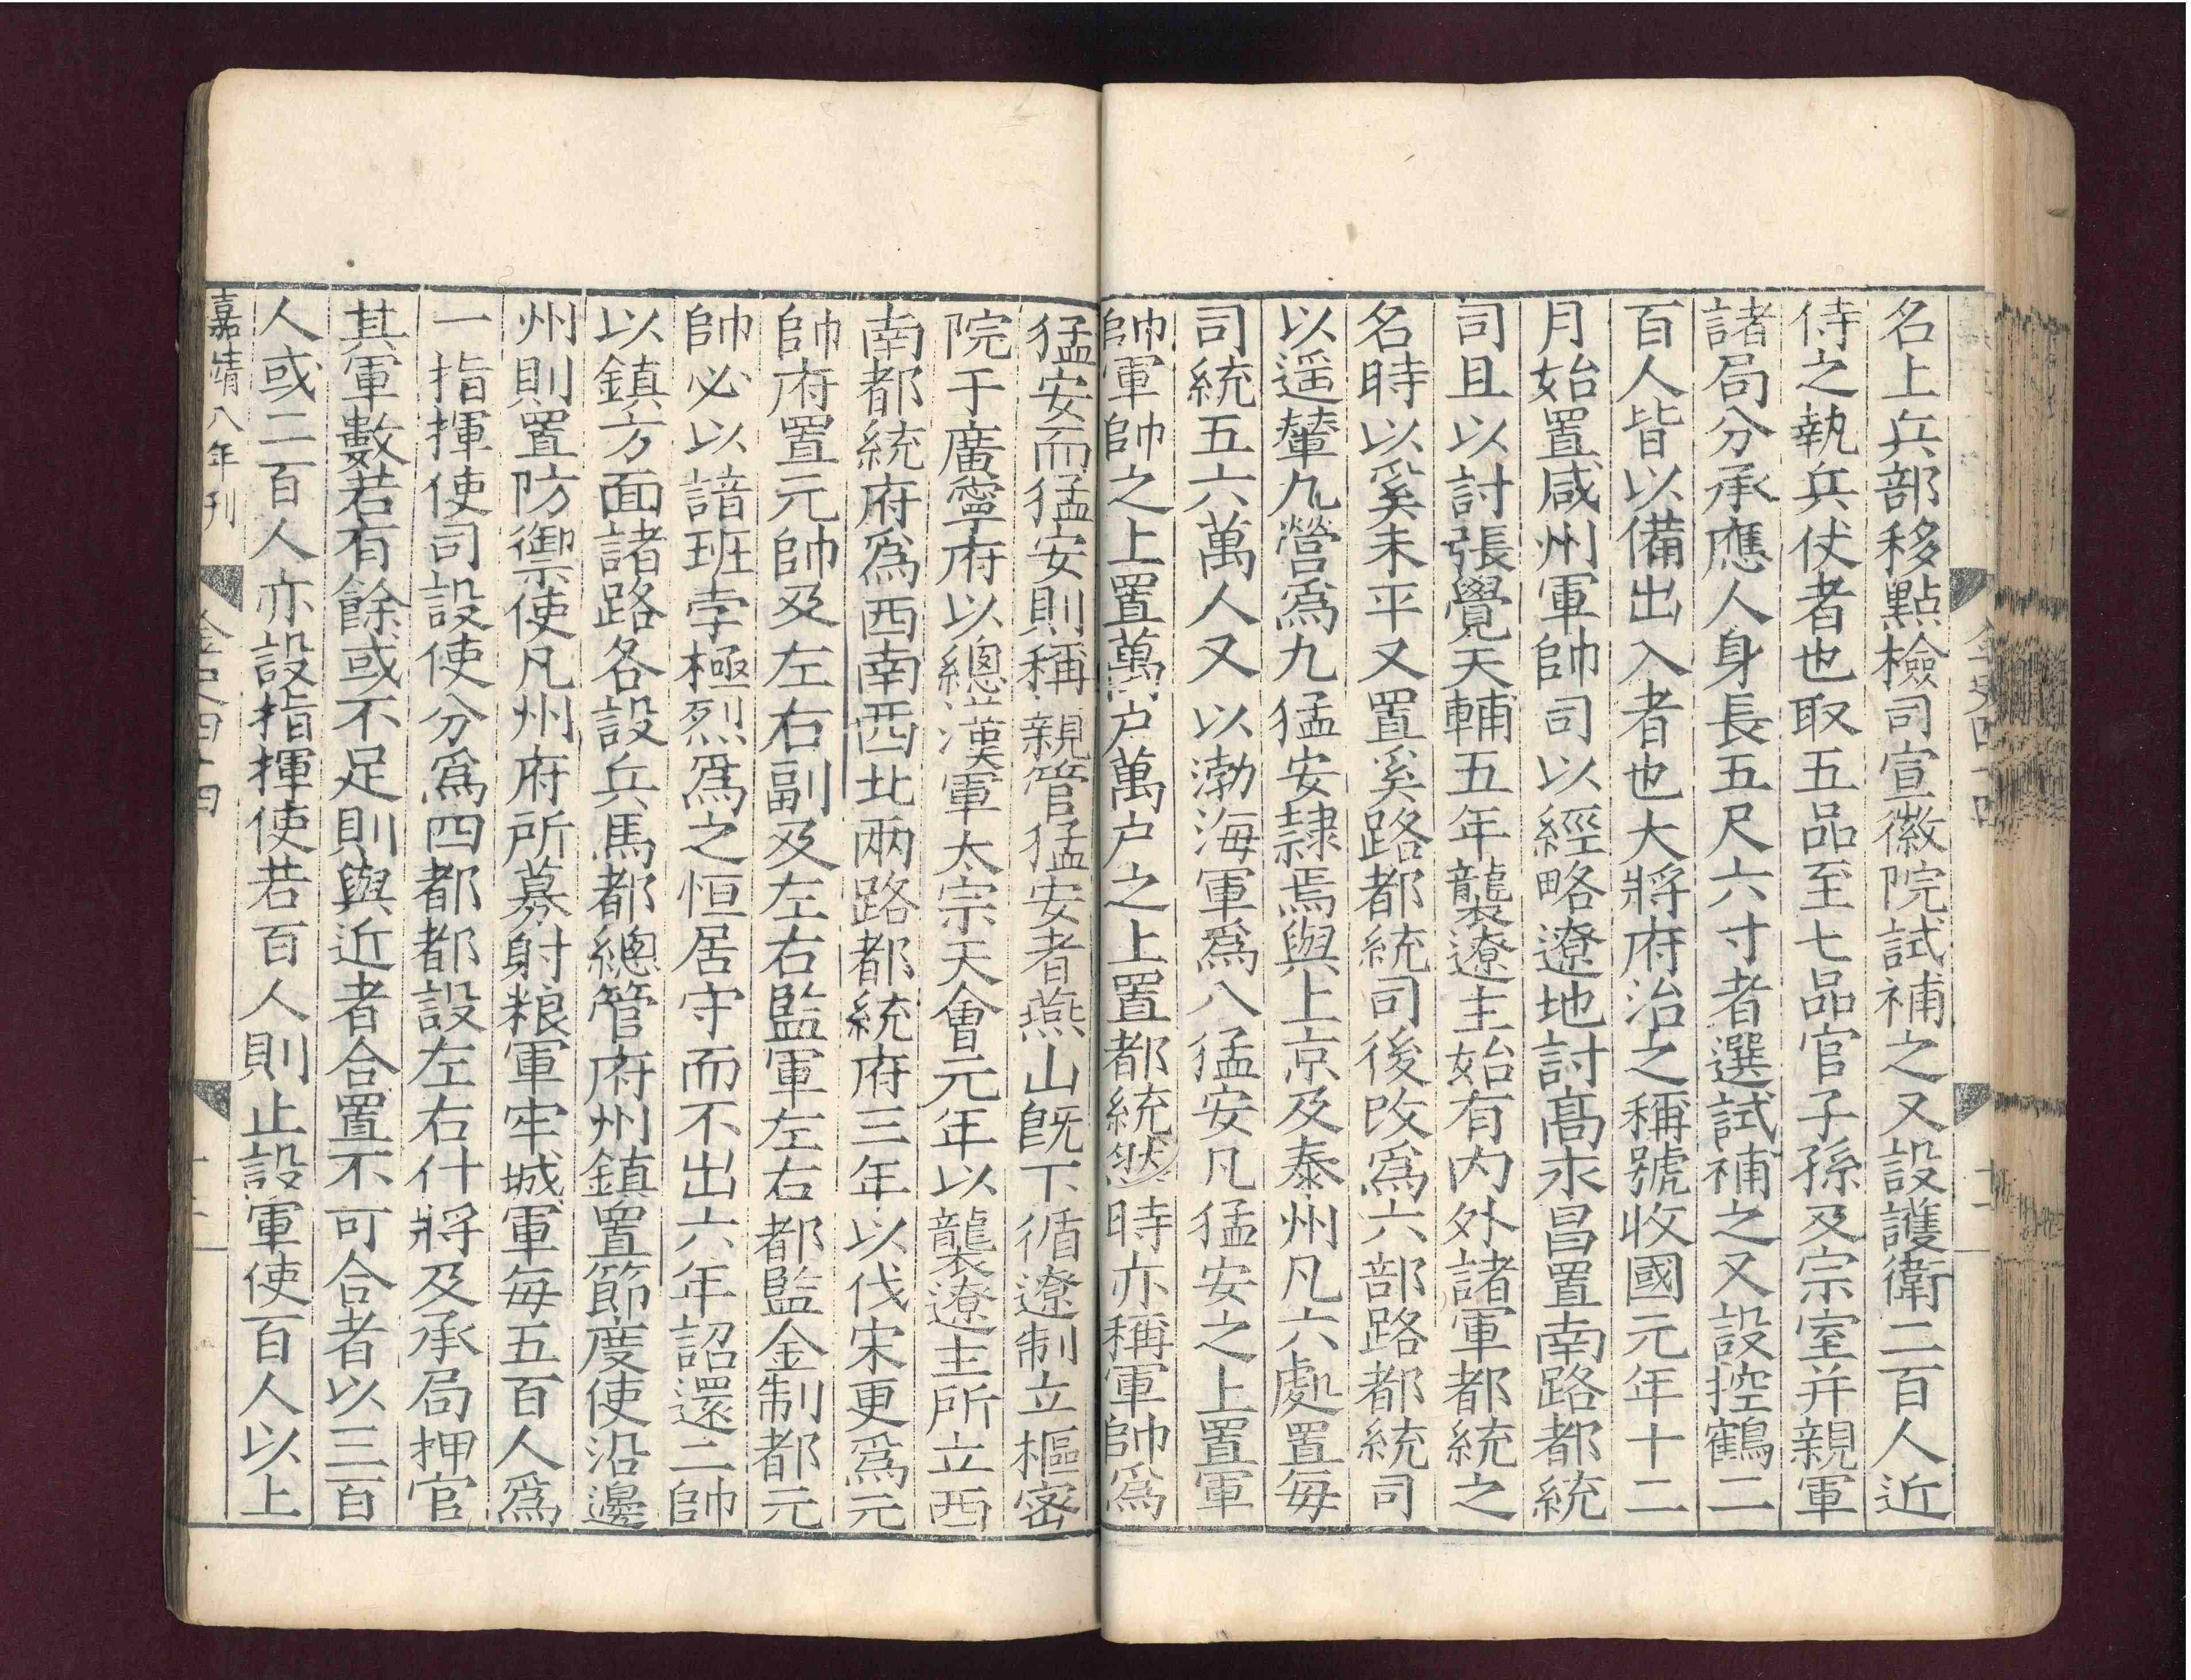 名上兵部移點檢司宣徽院試補之又設護衛二百人近
侍之執兵仗者也取五品至七品官子孫及宗室并親軍
諸局分承應人身長五尺六寸者選試補之又設控鶴二
百人皆以備出入者也大將府治之稱號收國元年十二
月始置咸州軍帥司以經略遼地討高永昌置南路都統
司且以討張覺天輔五年襲遼主始有内外諸軍都統之
名時以奚未平又置奚路都統司後改爲六部路都統司
以遥輦九營爲九猛安隷焉與上京及泰州凡六處置每
司統五六萬人又以渤海軍爲八猛安凡猛安之上置軍
帥軍帥之上置萬户萬户之上置都統然時亦稱軍帥爲
猛安而猛安則稱親管猛安者燕山旣下循遼制立樞密
院于廣寧府以總漢軍太宗天會元年以襲遼主所立西
南都統府爲西南西北兩路都統府三年以伐宋更爲元
帥府置元帥及左右副及左右監軍左右都監金制都元
帥必以諳班孛極烈爲之恒居守而不出六年詔還二帥
以鎮方面諸路各設兵馬都總管府州鎮置節度使沿邊
州則置防禦使凡州府所募射粮軍牢城軍每五百人爲
一指揮使司設使分爲四都都設左右什將及承局押官
其軍數若有餘或不足則與近者合置不可合者以三百
人或二百人亦設指揮使若百人則止設軍使百人以上
嘉靖八年刊
金史四十四
十二